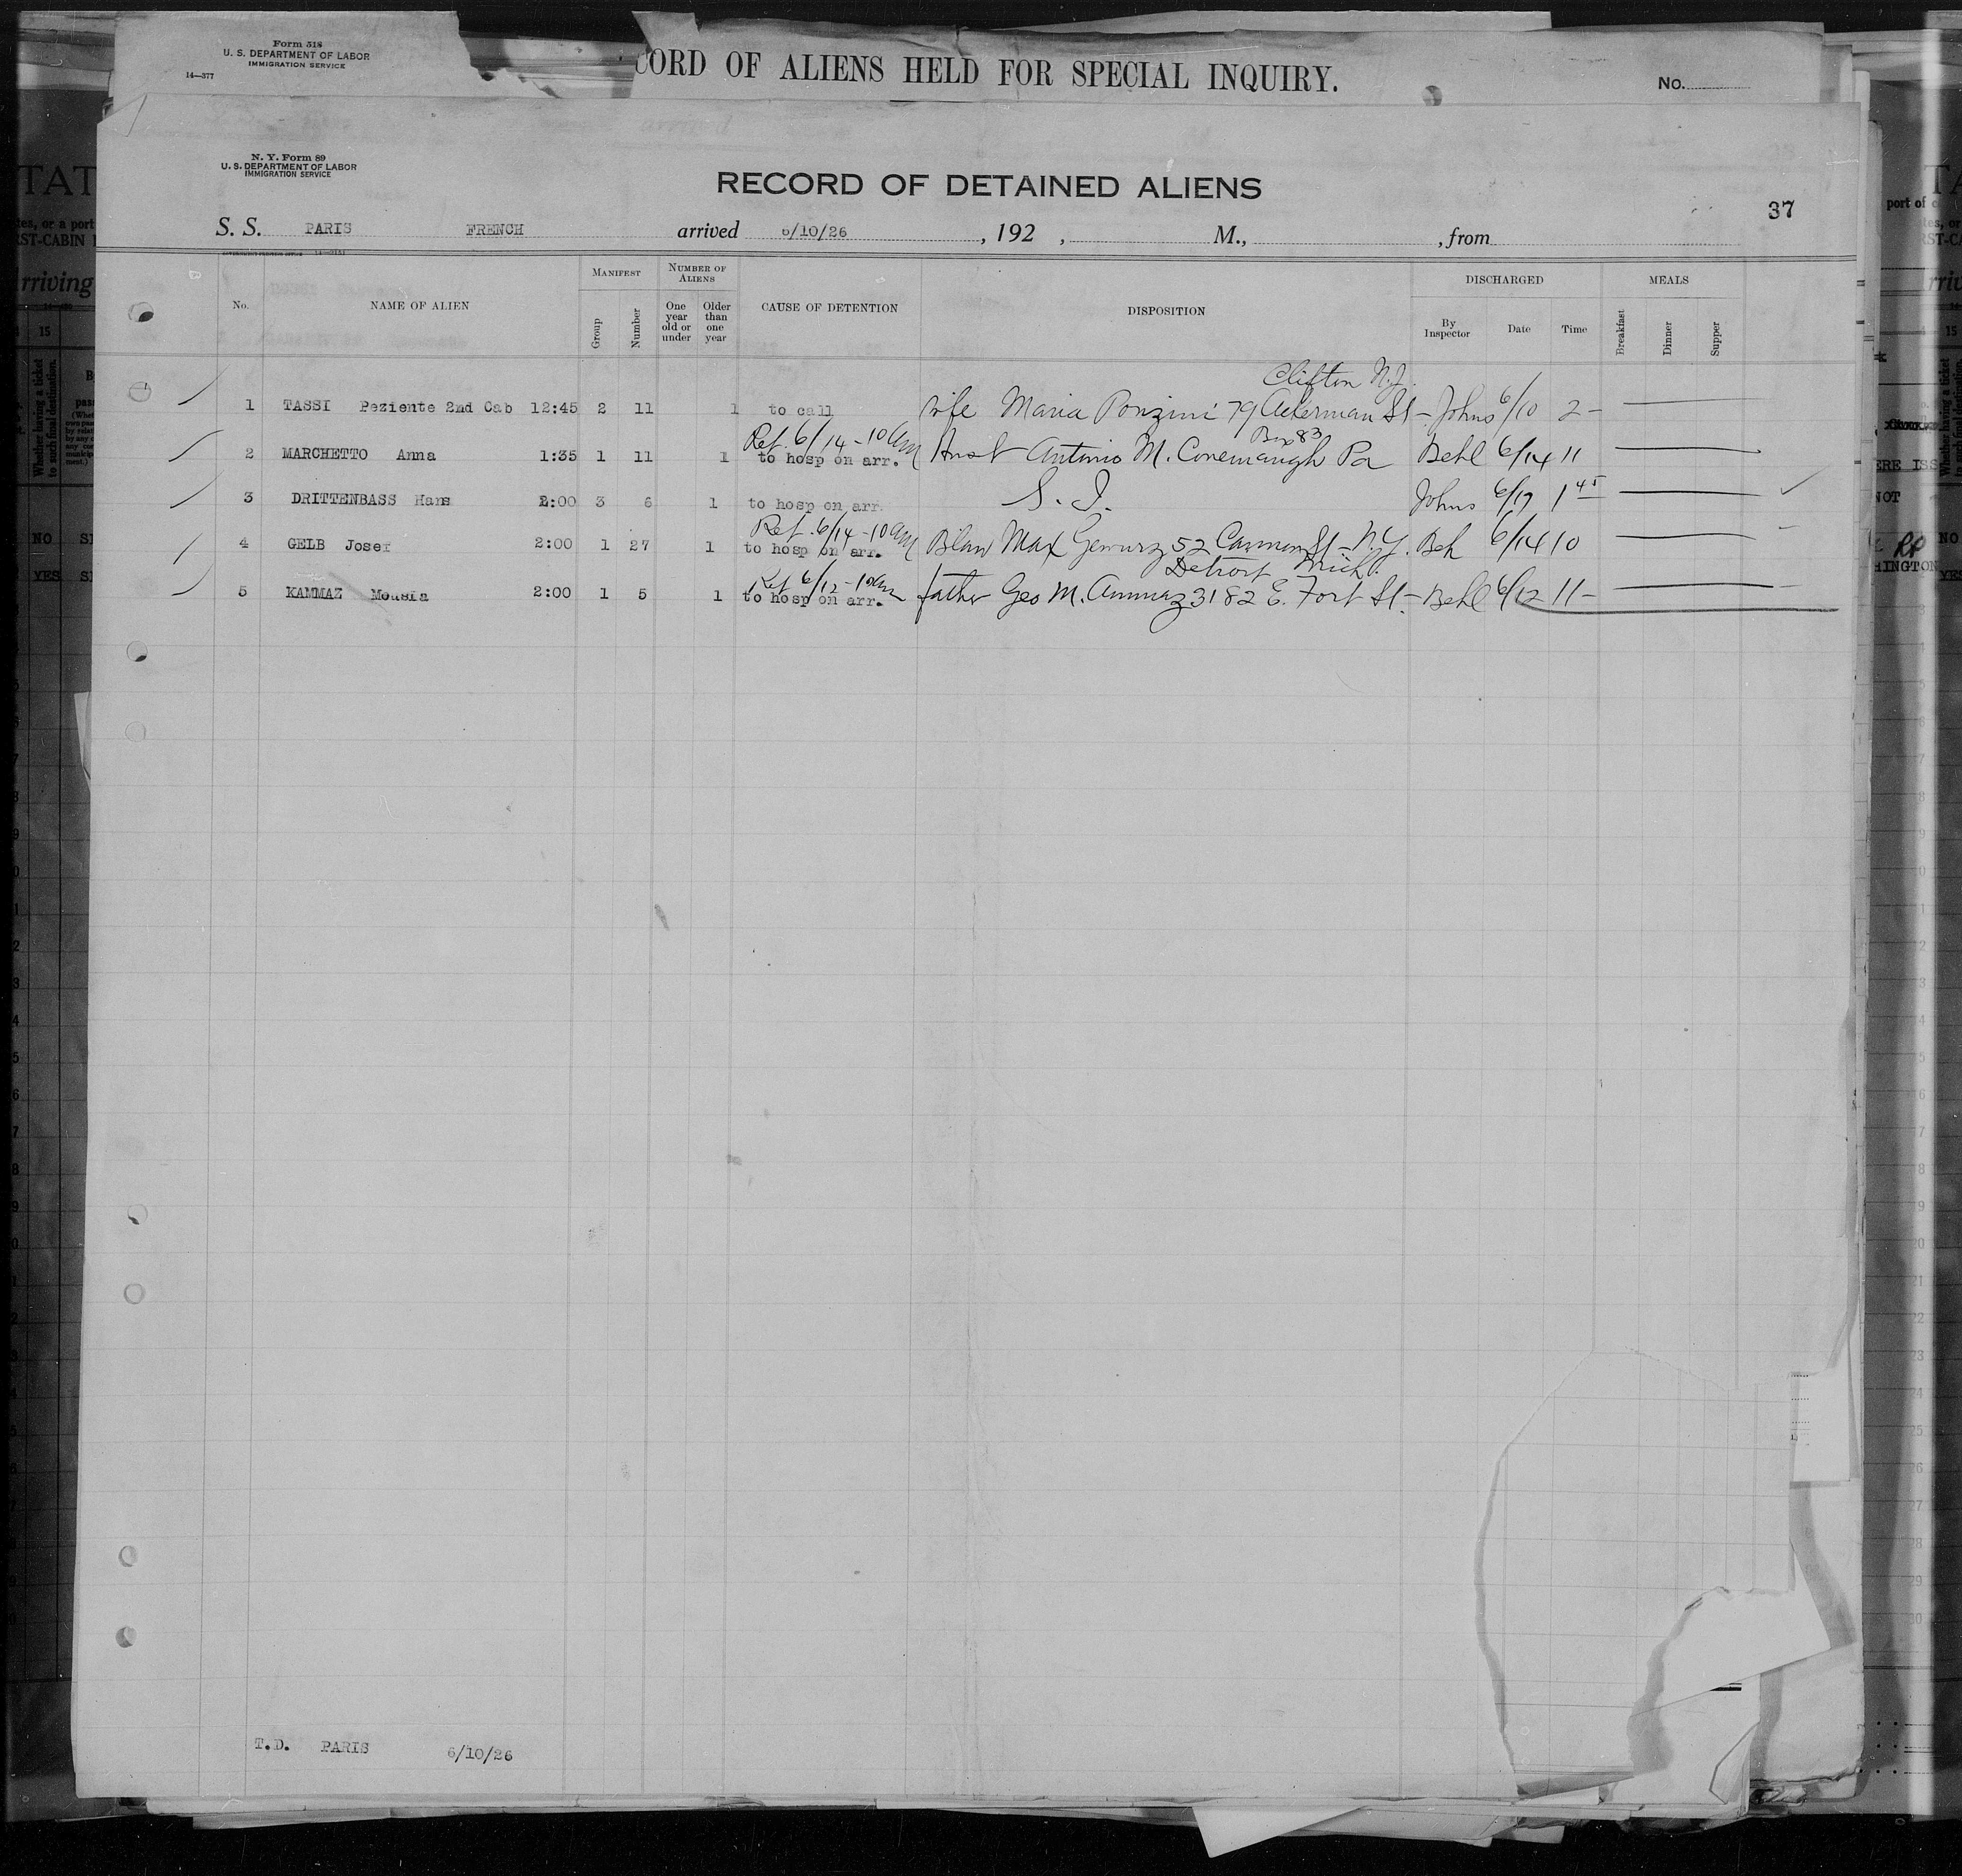 Form 518
U. S. DEPARTMENT OF LABOR
IMMIGRATION SERVICE
14—377
CORD OF ALIENS HELD FOR SPECIAL INQUIRY.
No.
N. Y. Form 89
U. S. DEPARTMENT OF LABOR
IMMIGRATION SERVICE
RECORD OF DETAINED ALIENS
37
S. S. PARIS FRENCH arrived 6/10/26, 192 , M., , from
No. NAME OF ALIEN MANIFEST Group Number NUMBER OF ALIENS One year old or under Older than one year CAUSE OF DETENTION DISPOSITION DISCHARGED By Inspector Date Time MEALS Breakfast Dinner Supper
Clifton N.J.
1 TASSI Peziente 2nd Cab 12:45 2 11 1 to call wife Maria Ponzini 79 Ackerman St - Johns 6/10 2 -
Ref. 6/14 - 10 am Box 83
2 MARCHETTO Anna 1:35 1 11 1 to hosp on arr. Antonio M. Conemaugh Pa Behl 6/14 11
3 DRITTENBASS Hans 2:00 3 6 1 to hosp on arr. S. I. Johns 6/17 1 45
Ref. 6/14 - 10 am
4 GELB Josef 2:00 1 27 1 to hosp on arr. Max Gewurz 52 Cannon St - N.Y. Beh 6/14 10
Ref 6/12 - 10 am Detroit Mich.
5 KAMMAZ Mousia 2:00 1 5 1 to hosp on arr. father Geo M. Ammaz 3182 E. Fort St - Behl 6/12 11 -
T.D. PARIS 6/10/26